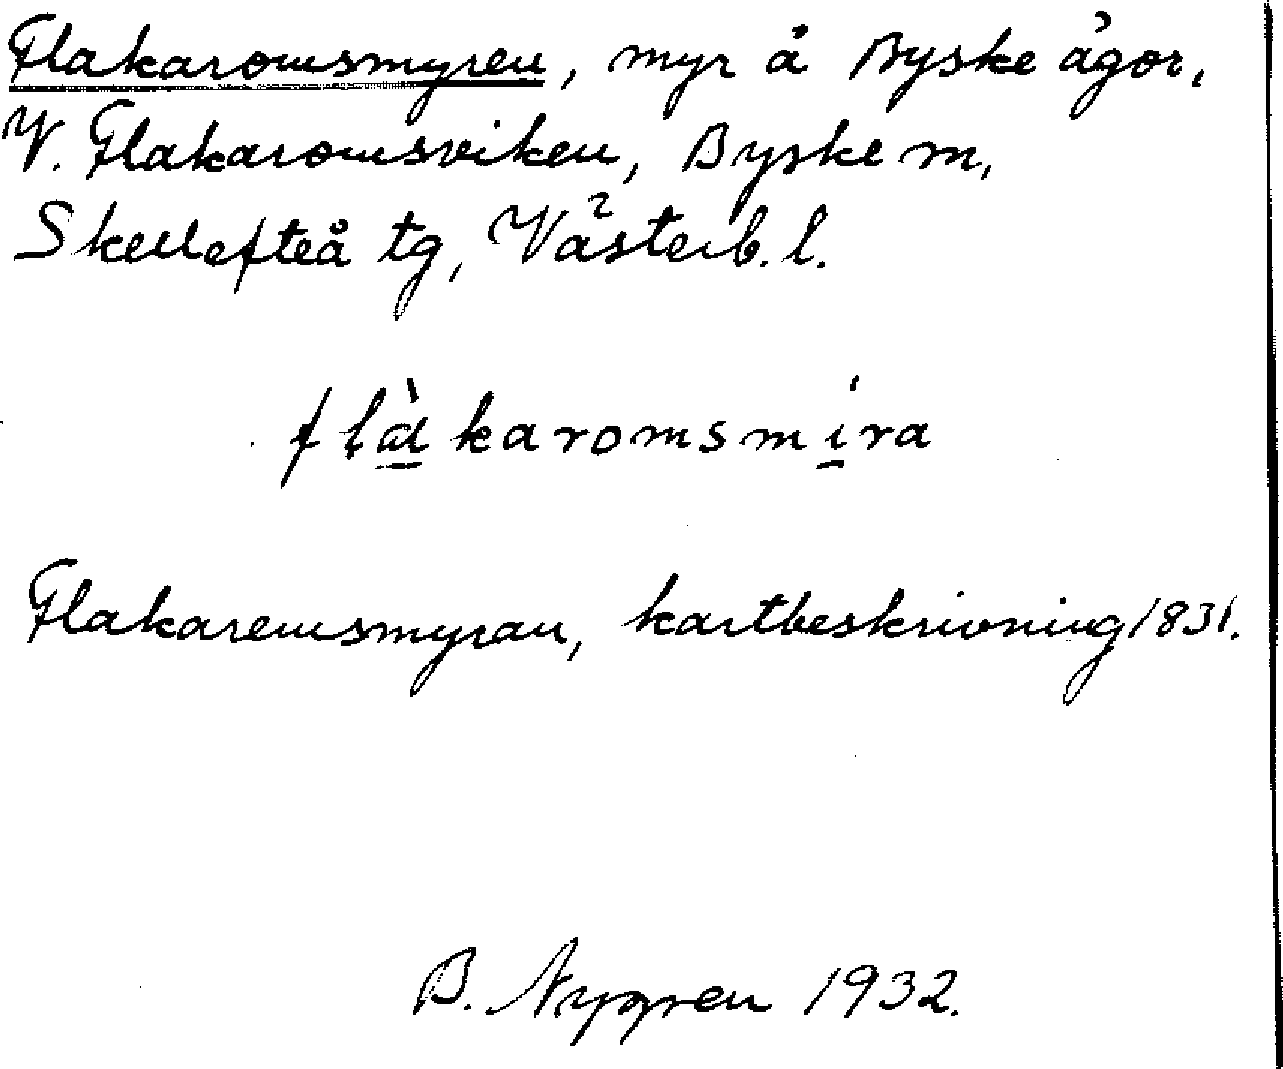 Flakaromsmyren, myr å Byske ägor,
V. Flakaromsviken, Byske sn,
Skellefteå tg, Västerb. l.
flàkaromsmíra
Flakaremsmyran, kartbeskrivning 1831.
B. Nygren 1932.